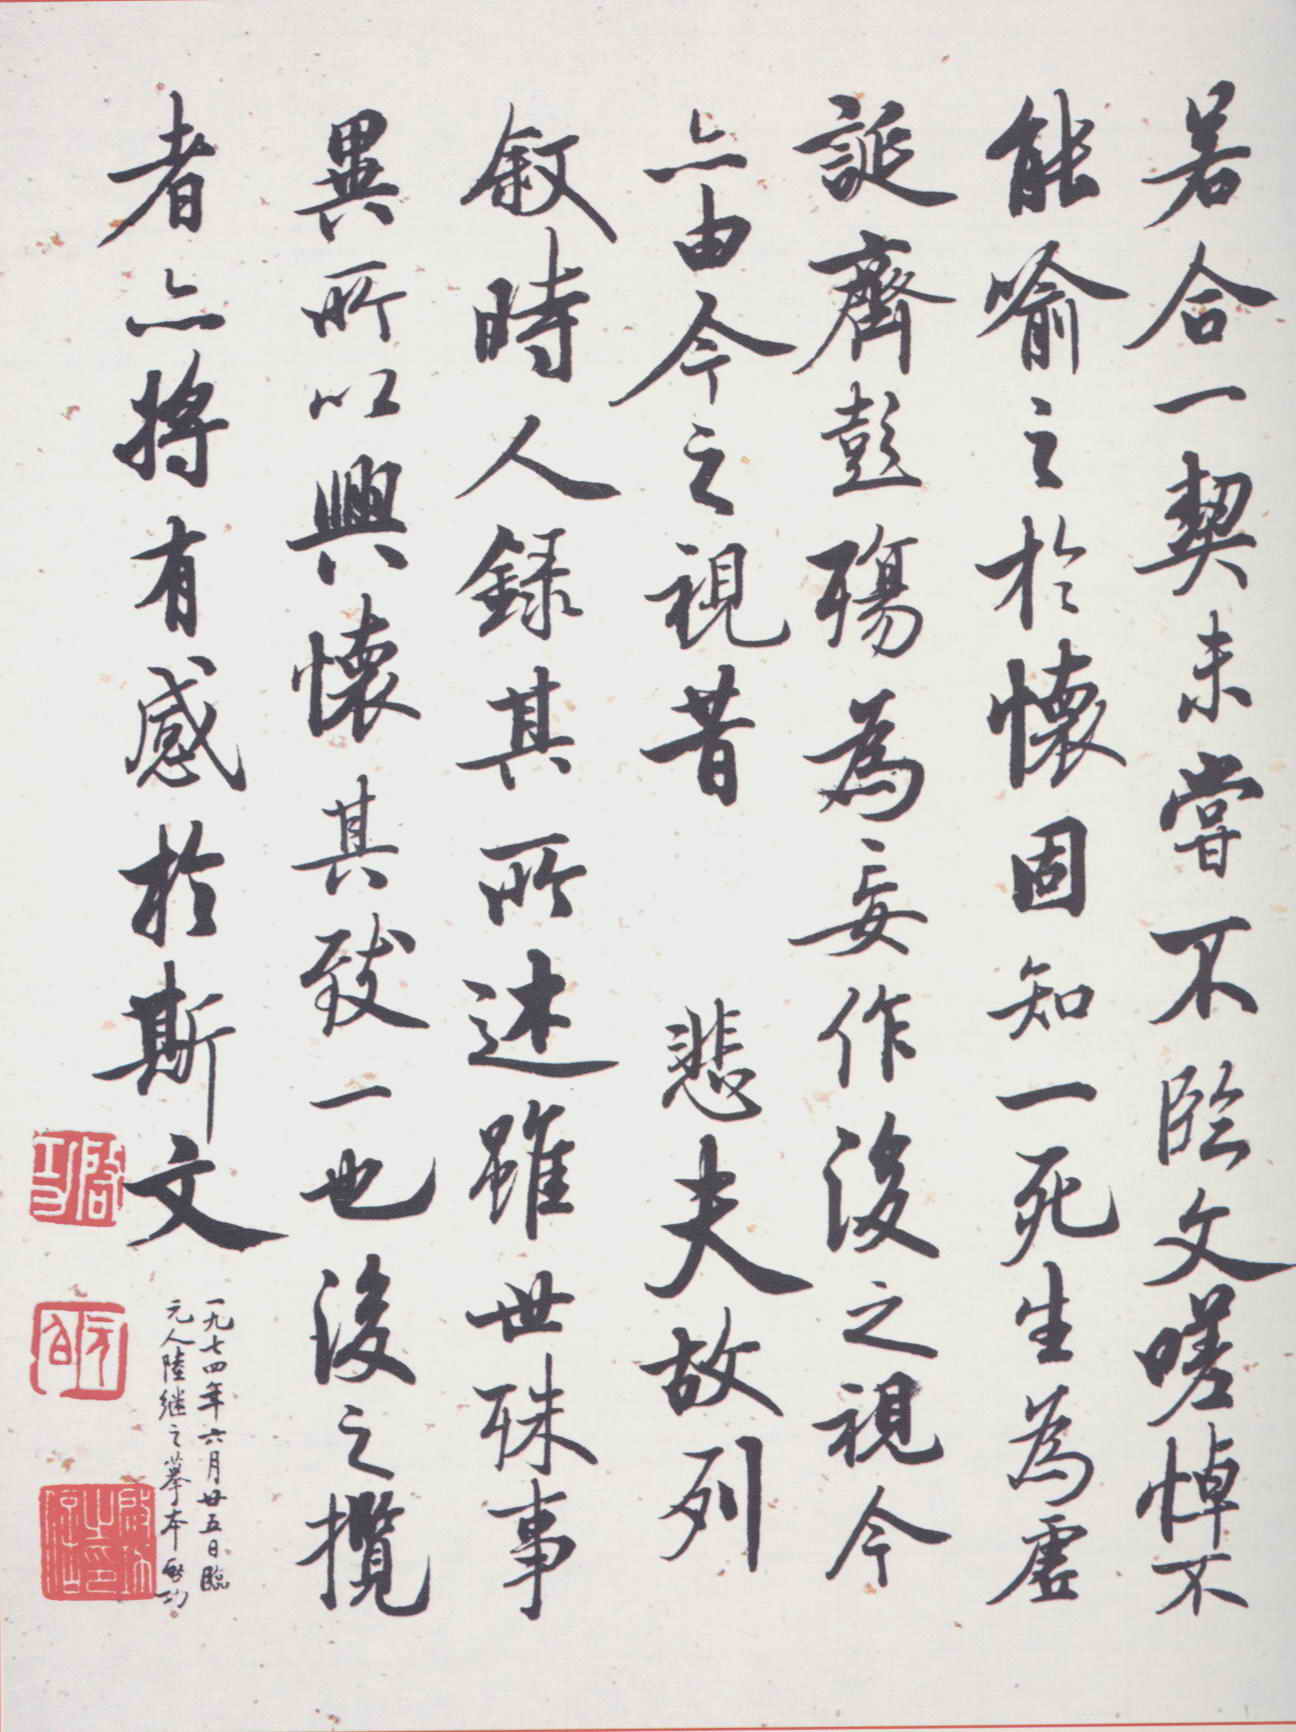 若合一契未嘗不臨文嗟悼不
能喻之於懷固知一死生為虛
誕齊彭殤為妄作後之視今
亦由今之視昔 悲夫故列
敘時人錄其所述雖世殊事
異所以興懷其致一也後之攬
者亦將有感於斯文
一九七四年六月廿五日臨
元人陸継之摹本啟功
啟功